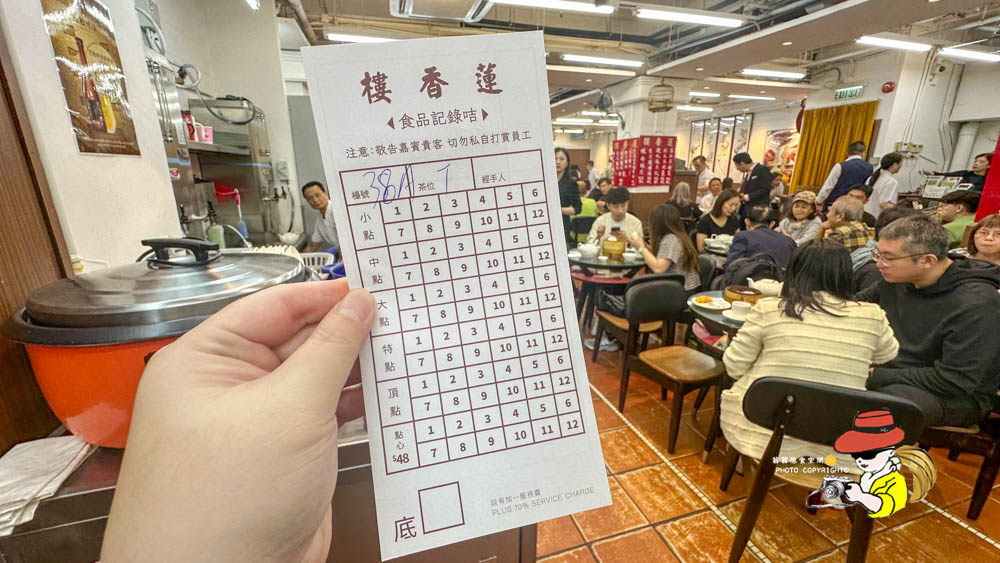 樓香蓮
◀食品記錄咭▶
注意:敬告嘉賓貴客 切勿私自打賞員工
檯號 38A 茶位 T 經手人
小點 1 2 3 4 5 6
7 8 9 10 11 12
中點 1 2 3 4 5 6
7 8 9 10 11 12
大點 1 2 3 4 5 6
7 8 9 10 11 12
特點 1 2 3 4 5 6
7 8 9 10 11 12
頂點 1 2 3 4 5 6
7 8 9 10 11 12
點心 $48 1 2 3 4 5 6
7 8 9 10 11 12
底
設有加一服務費
PLUS 10% SERVICE CHARGE
樓香蓮
PHOTO COPYRIGHT©